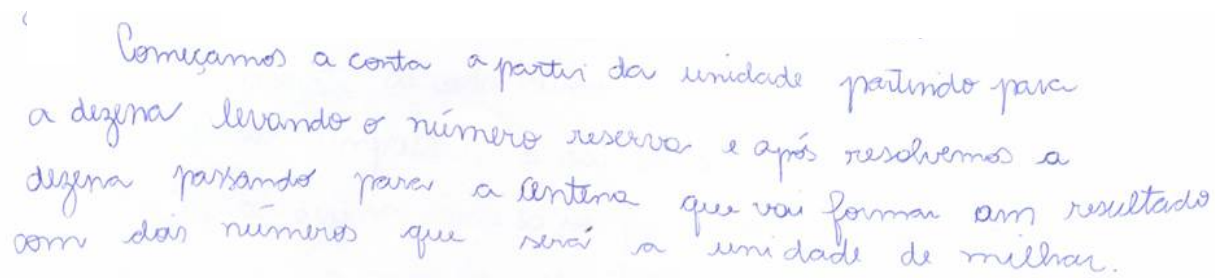 Começamos a conta a partir da unidade partindo para
a dezena levando o número reserva e após resolvemos a
dezena passando para a centena que vai formar am resultado
com dois números que será a unidade de milhar.